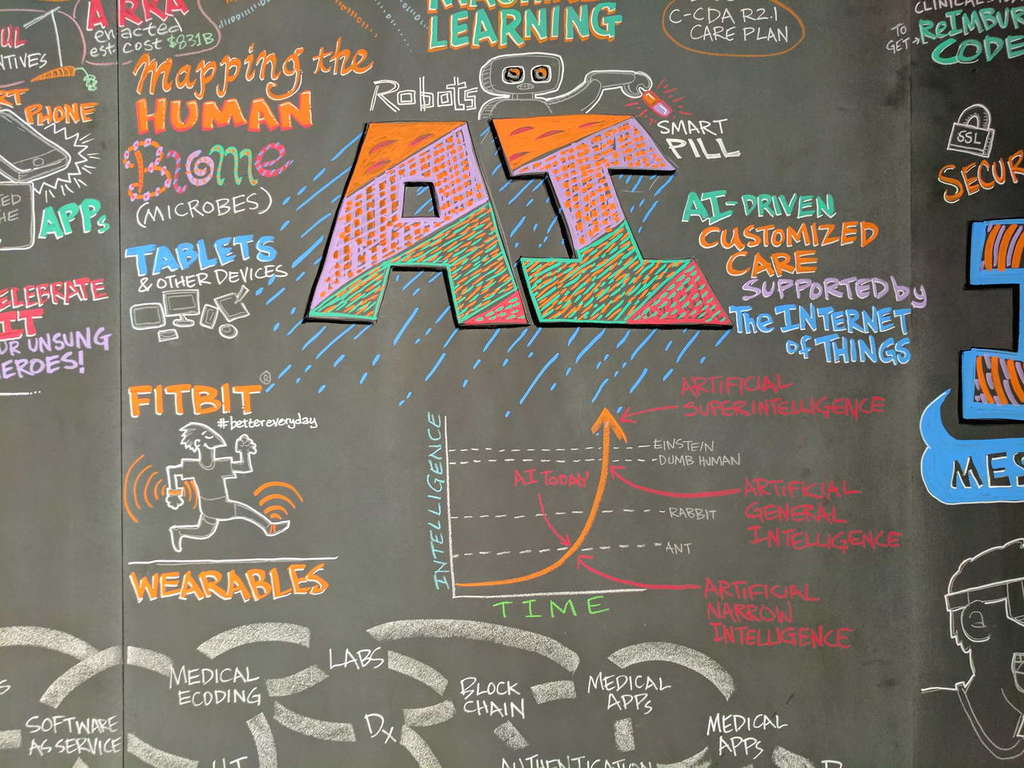 ARRA
enacted
est cost $831B
MACHINE
LEARNING
C-CDA R2.1
CARE PLAN
TO
GET →
REIMBUR
CODE
NTIVES
Mapping the
HUMAN
Biome
(MICROBES)
Robots
SMART
PILL
AI
SSL
SECUR
PHONE
APPs
TABLETS
& OTHER DEVICES
AI-DRIVEN
CUSTOMIZED
CARE
SUPPORTED by
The INTERNET
of THINGS
ELEBRATE
IT
OR UNSUNG
EROES!
FITBIT ®
#bettereveryday
WEARABLES
INTELLIGENCE
TIME
ARTIFICIAL
SUPERINTELLIGENCE
EINSTEIN
DUMB HUMAN
AI TODAY
RABBIT
ARTIFICIAL
GENERAL
INTELLIGENCE
ANT
ARTIFICIAL
NARROW
INTELLIGENCE
MES
MEDICAL
ECODING
LABS
BLOCK
CHAIN
MEDICAL
APPs
SOFTWARE
AS SERVICE
Dx
MEDICAL
APPs
AUTHENTICATION